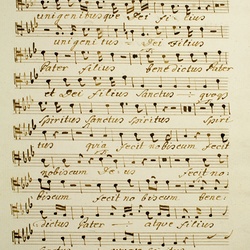 unigenitusque Dei filius
unigenitus Dei Filius
Pater filius benedictus Pater
et Dei filius Sanctus
Spiritus Sanctus Spiritus Spiri
tus quia fecit nobiscum fecit
nobiscum fecit no
biscum fecit nobiscum bene
dictus Pater atque filius